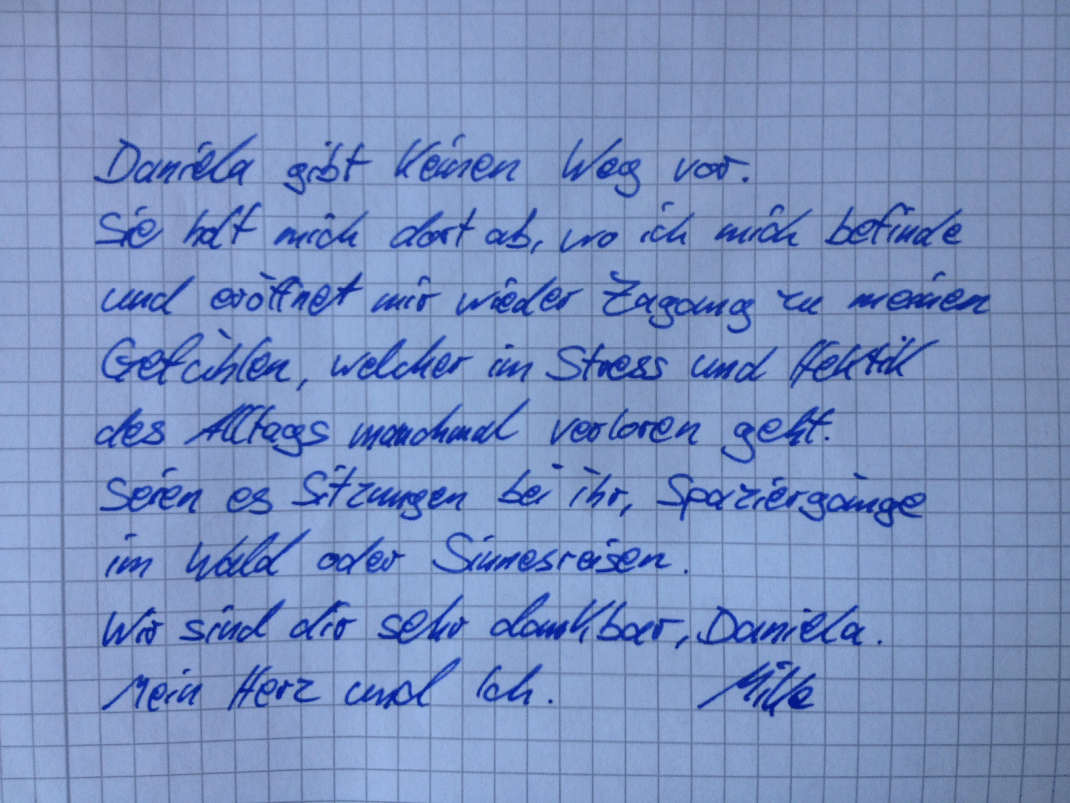 Daniela gibt keinen Weg vor.
Sie holt mich dort ab, wo ich mich befinde
und eröffnet mir wieder Zugang zu meinen
Gefühlen, welcher im Stress und Hektik
des Alltags manchmal verloren geht.
Seien es Sitzungen bei ihr, Spaziergänge
im Wald oder Sinnesreisen.
Wir sind dir sehr dankbar, Daniela.
Mein Herz und Ich.